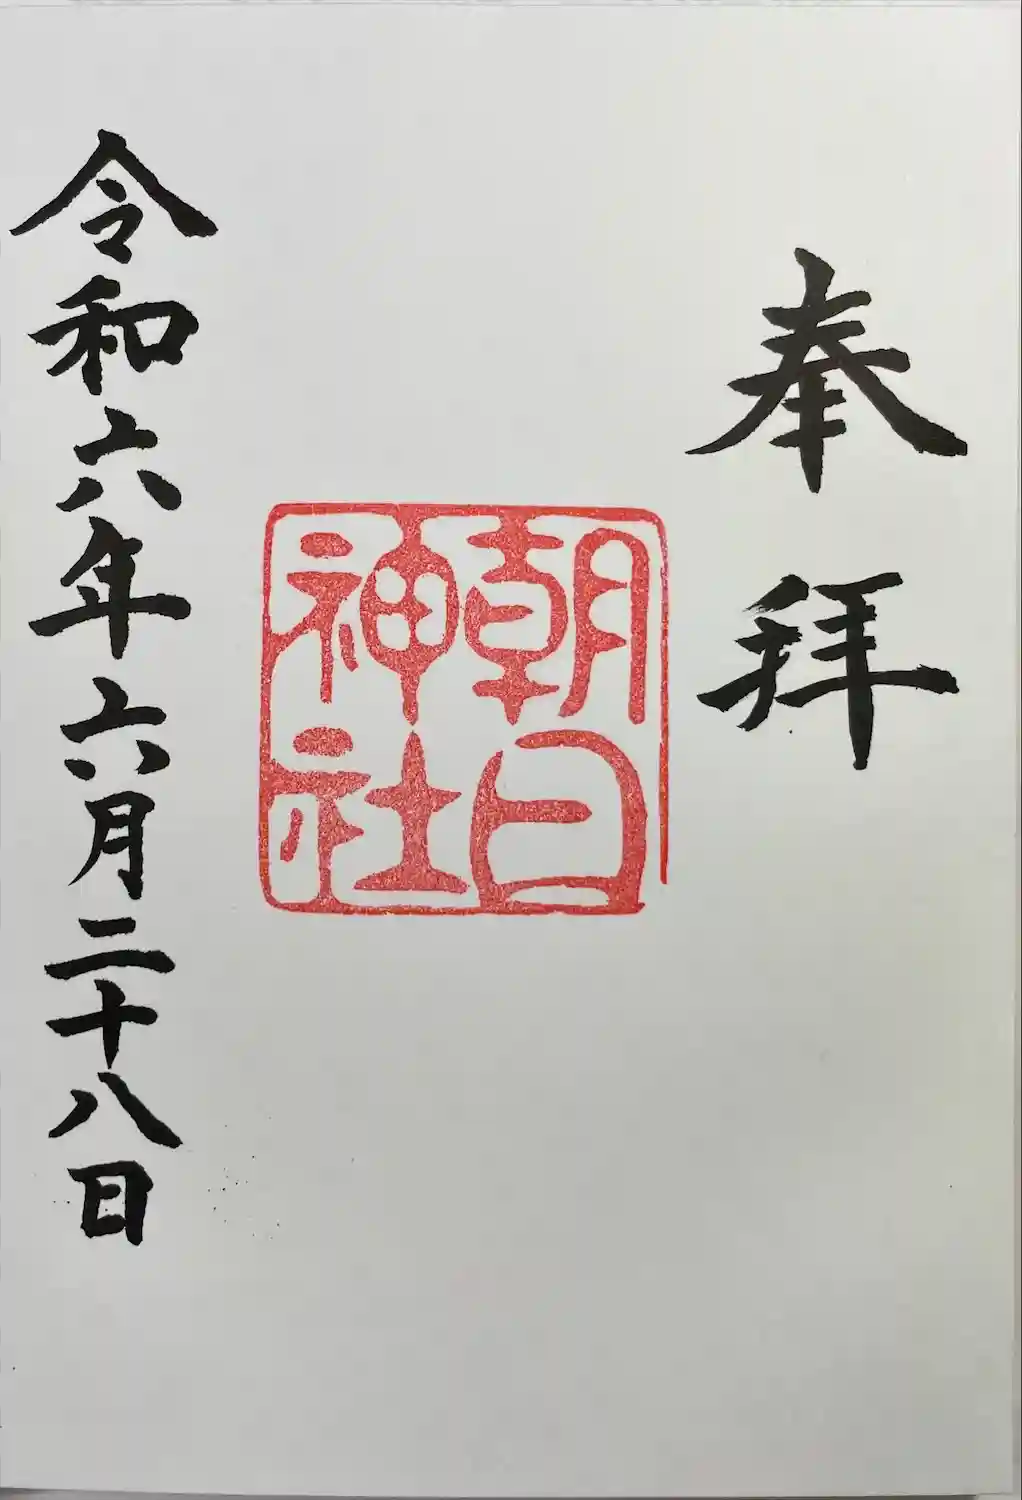 奉拝
朝日
神社
令和六年六月二十八日